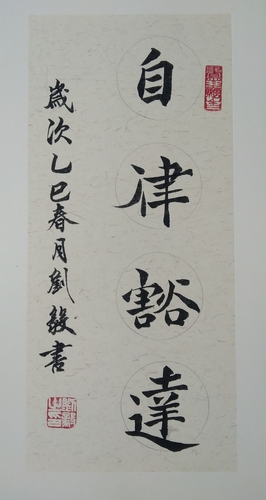 自律豁達
歲次乙巳春月劉毅書